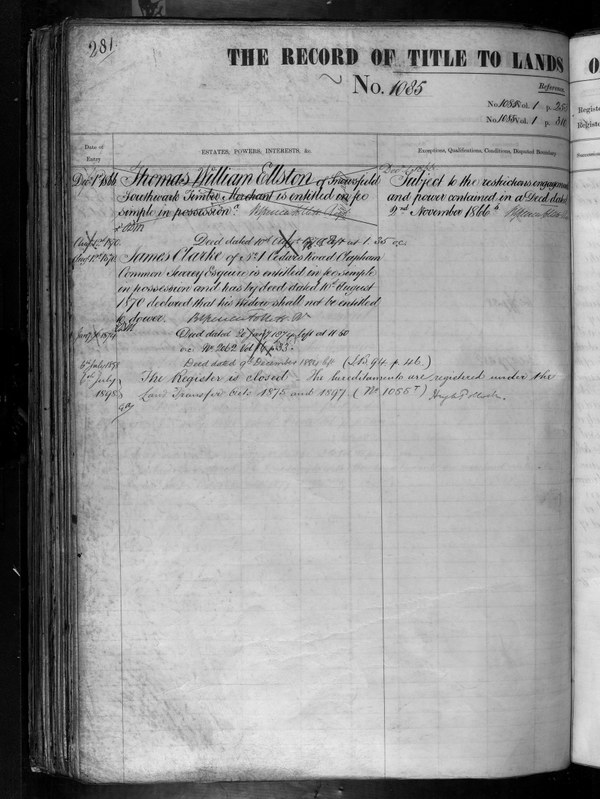 281
THE RECORD OF TITLE TO LANDS
No. 1085
Reference
No. 1085 Vol. 1 p. 28
No. 1085 Vol. 1 p. 310
Date of
Entry
ESTATES, POWERS, INTERESTS, &c.
Exceptions, Qualifications, Conditions, Disputed Boundary
Decr 1st 1866 Thomas William Ellston of
Southwark Timber Merchant is entitled in fee
simple in possession
Subject to the restrictions engagements
and power contained in a Deed dated
2nd November 1866
Deed dated 10th at 1.35
Augt 1870 James Clarke of No 1 Cedars Road Clapham
Common Surrey Esquire is entitled in fee simple
in possession and has by deed dated 10th August
1870 declared that his widow shall not be entitled
to dower.
Deed dated 1874 left at 11.50
No 2062 Vol
Deed dated 9th December 1884 left (I.B. 94. p. 46)
6th July 1898
July
1898
The Register is closed – The hereditaments are registered under the
Land Transfer Acts 1875 and 1897 (No 1085 T) Hugh Pollock.
Registe
Registe
O